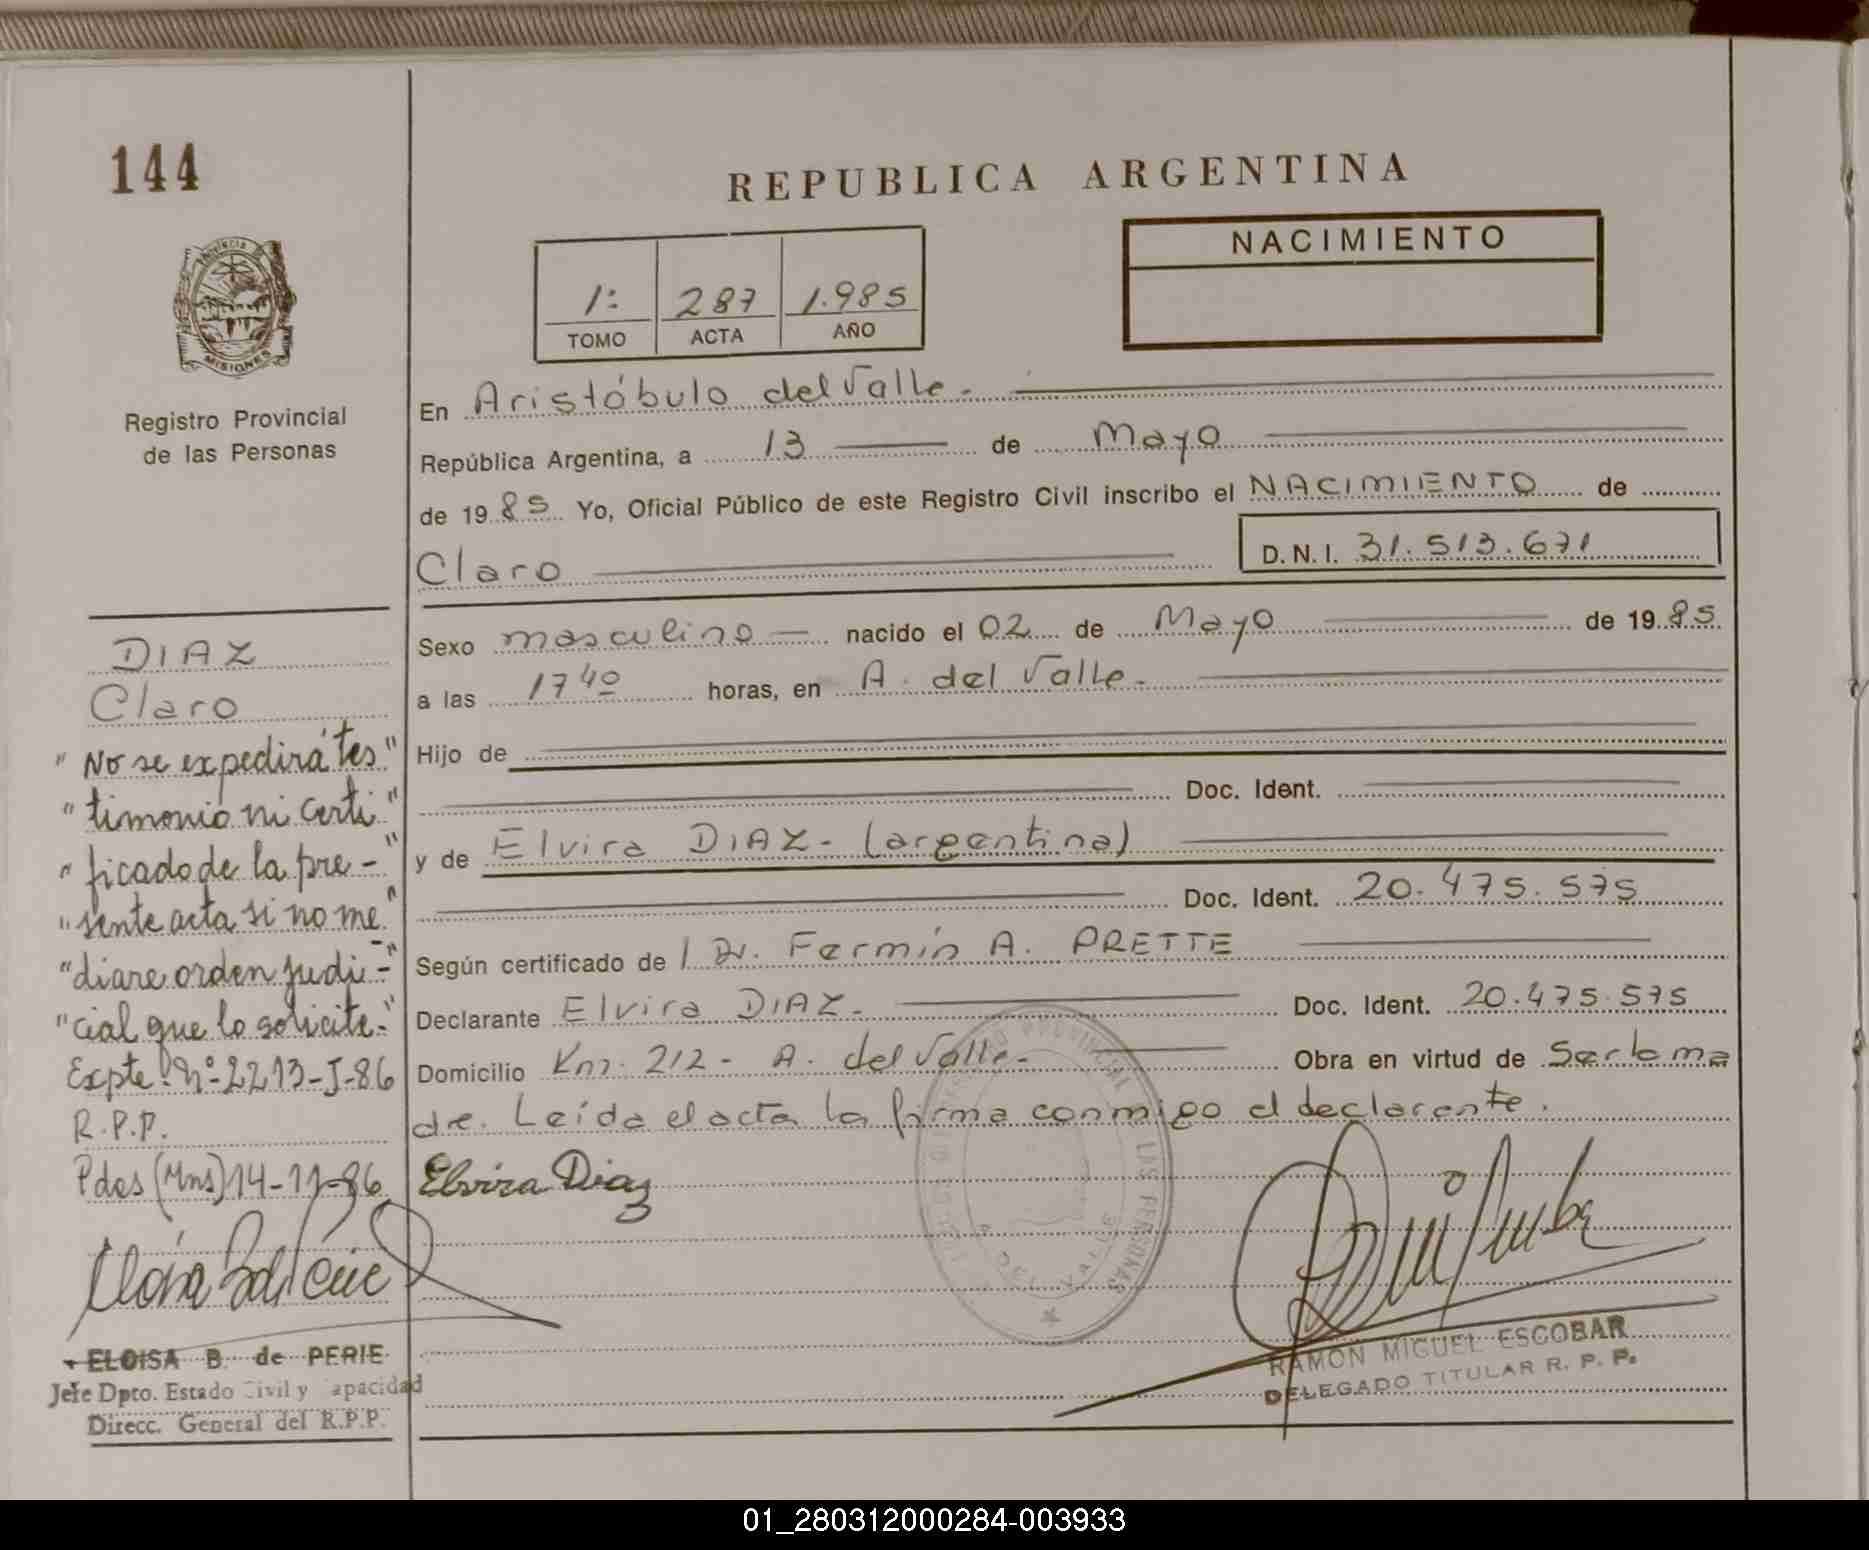 144
REPUBLICA ARGENTINA
NACIMIENTO
1: 287 1.985
TOMO ACTA AÑO
PROVINCIA D
MISIONES
Registro Provincial
de las Personas
En Aristóbulo del Valle.
República Argentina, a 13 de Mayo
de 1985 Yo, Oficial Público de este Registro Civil inscribo el NACIMIENTO de
Claro D.N.I. 31.513.671
Sexo masculino nacido el 02 de Mayo de 1985
a las 17 40 horas, en A. del Valle.
Hijo de
Doc. Ident.
y de Elvira DIAZ - (argentina)
Doc. Ident. 20.475.575
Según certificado de Dr. Fermín A. PRETTE
Declarante Elvira DIAZ. Doc. Ident. 20.475.575
Domicilio Km. 212 - A. del Valle. Obra en virtud de ser la ma
dre. Leída el acta la firma conmigo el declarante.
Elvira Diaz
PROVINCIAL LAS PERSONAS
A. DEL VALLE
RAMON MIGUEL ESCOBAR
DELEGADO TITULAR R. P. P.
DIAZ
Claro
"No se expedirá tes"
"timonio ni certi"
"ficado de la pre-"
"sente acta si no me-"
"diare orden judi-"
"cial que lo solicite."
Expte. Nº 2213-J-86
R.P.P.
Pdas (Mns) 14-11-86
ELOISA B. de PERIE
Jefe Dpto. Estado Civil y Capacidad
Direcc. General del R.P.P.
01_280312000284-003933